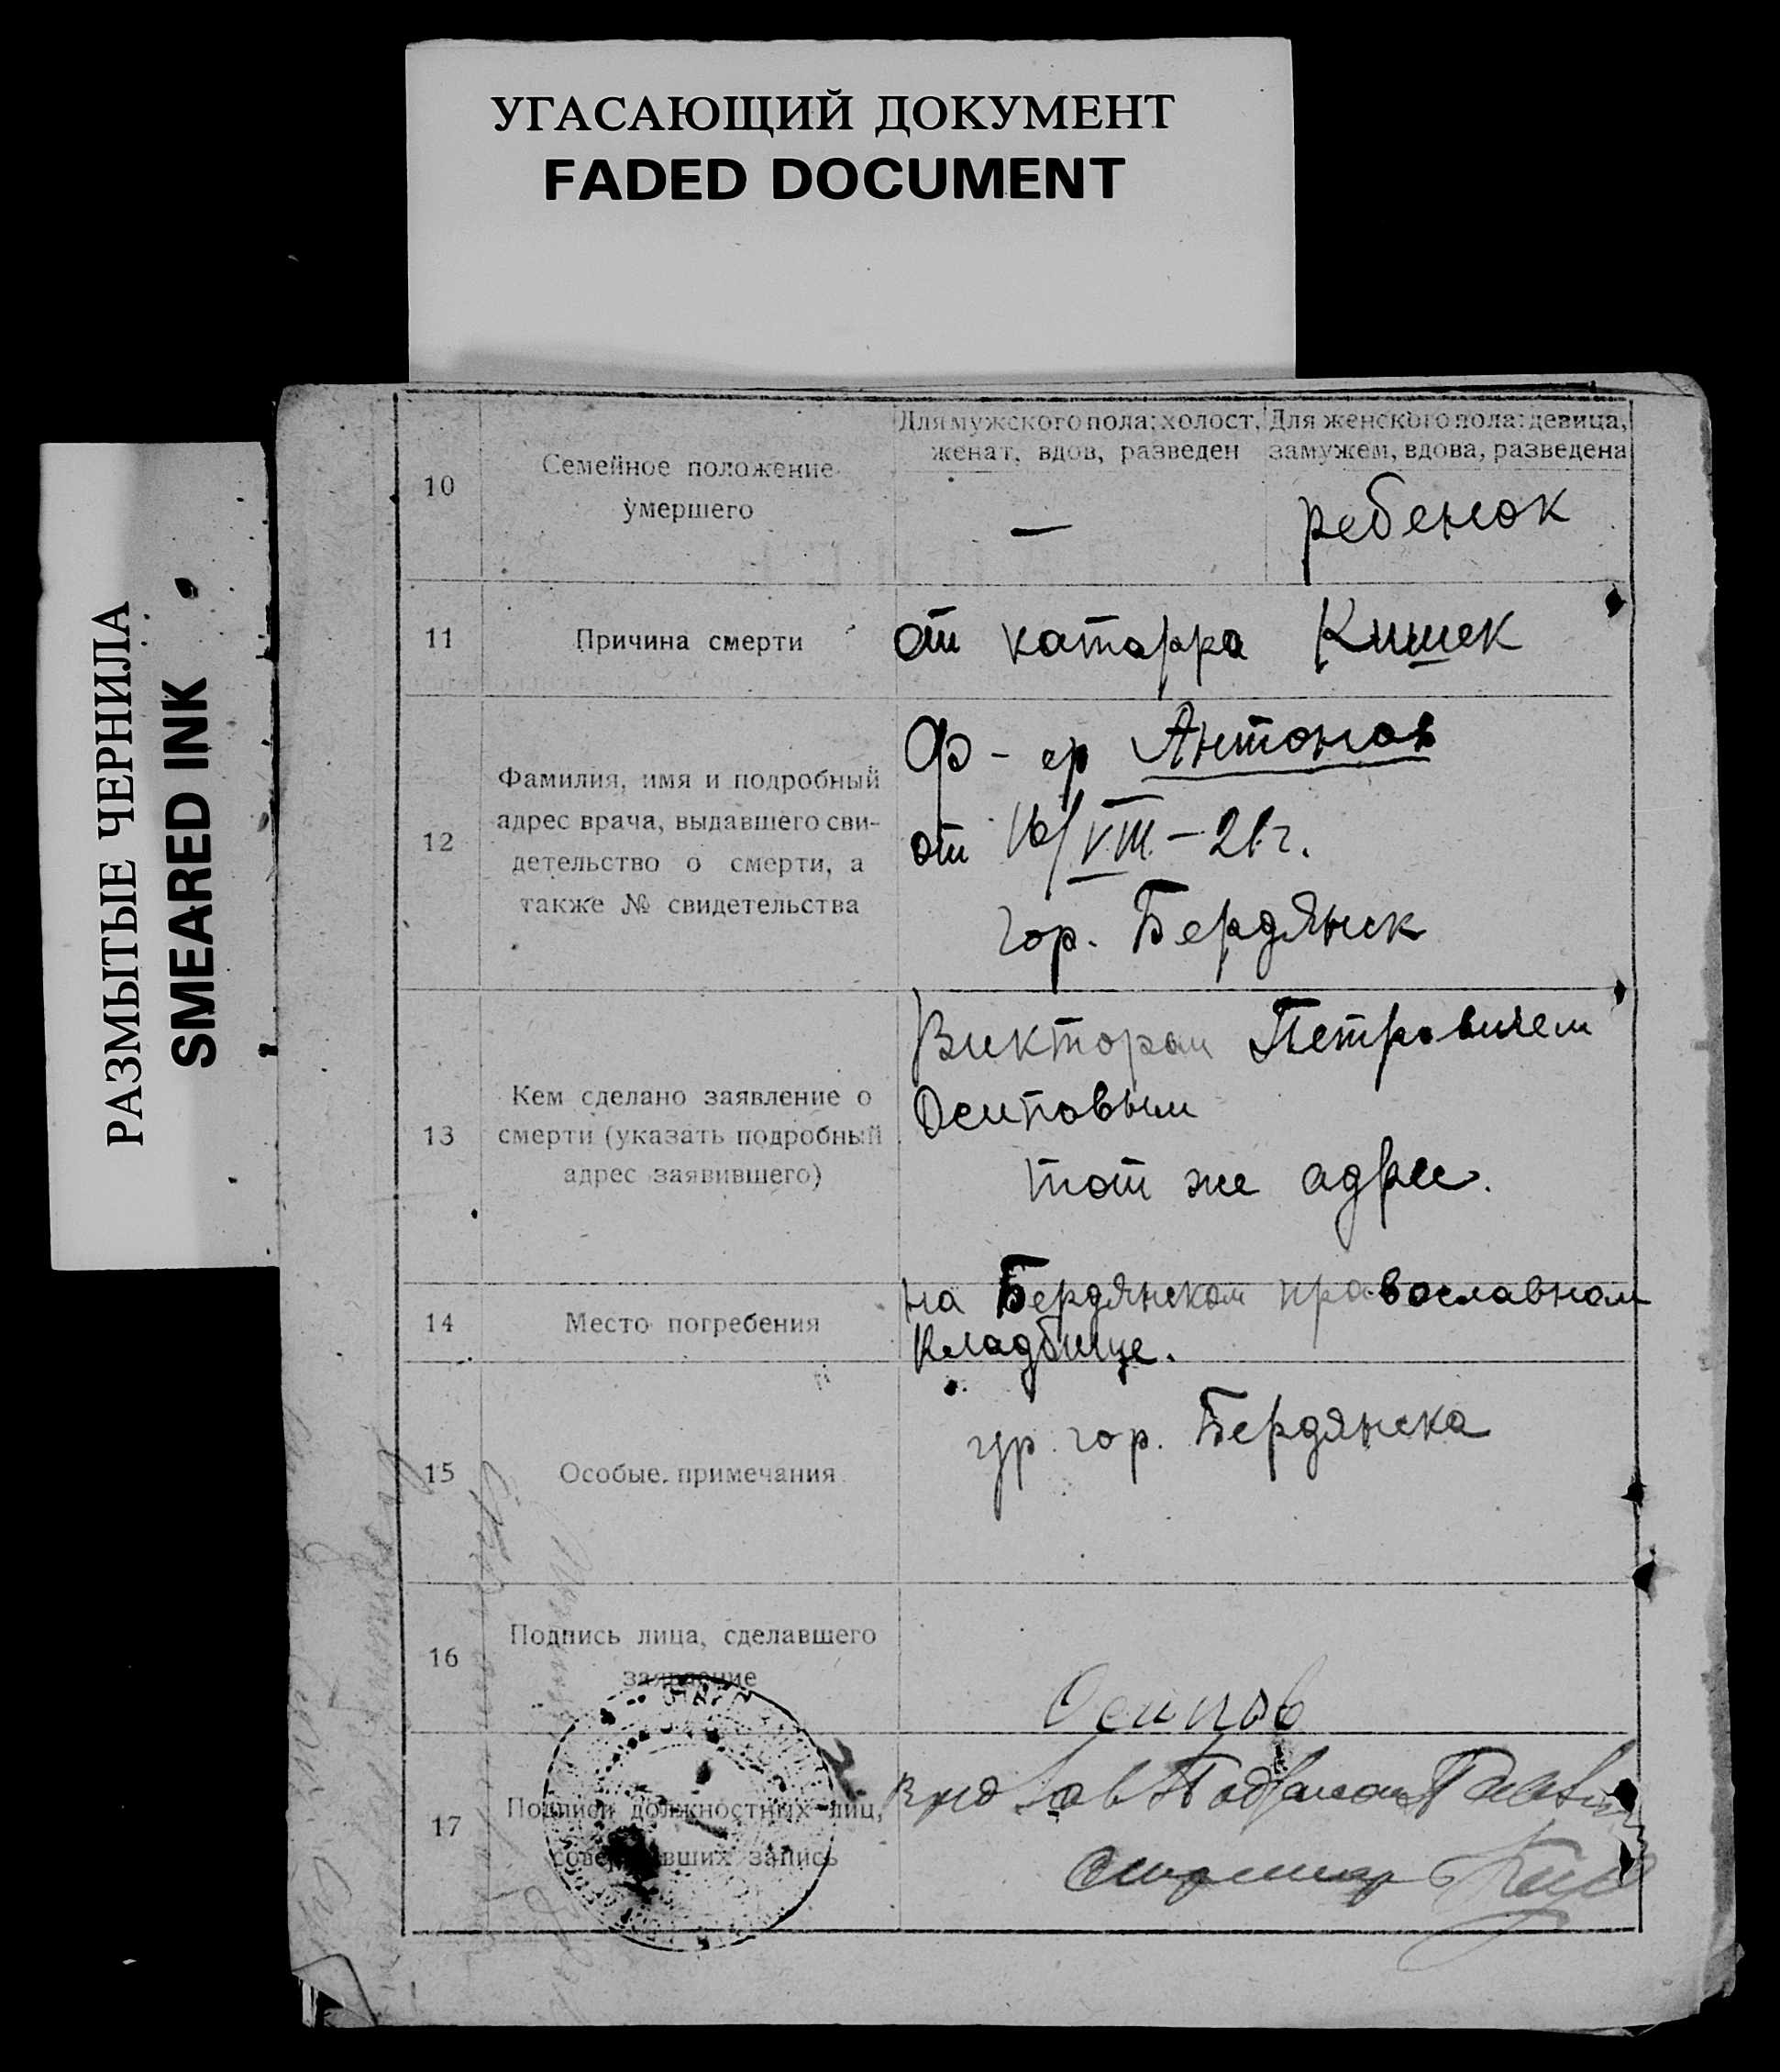 УГАСАЮЩИЙ ДОКУМЕНТ
FADED DOCUMENT
РАЗМЫТЫЕ ЧЕРНИЛА
SMEARED INK
Для мужского пола: холост, женат, вдов, разведен
Для женского пола: девица, замужем, вдова, разведена
10
Семейное положение
умершего
—
ребенок
11
Причина смерти
от катарра Кишек
12
Фамилия, имя и подробный
адрес врача, выдавшего сви-
детельство о смерти, а
также № свидетельства
Ф-ер Антонов
от 16/VIII-21 г.
гор. Бердянск
13
Кем сделано заявление о
смерти (указать подробный
адрес заявившего)
Виктором Петровичем
Осиповым
тот же адрес.
14
Место погребения
на Бердянском православном
кладбище.
15
Особые примечания
гр. гор. Бердянска
16
Подпись лица, сделавшего
заявление
Осипов
17
Подписи должностных лиц,
совершивших запись